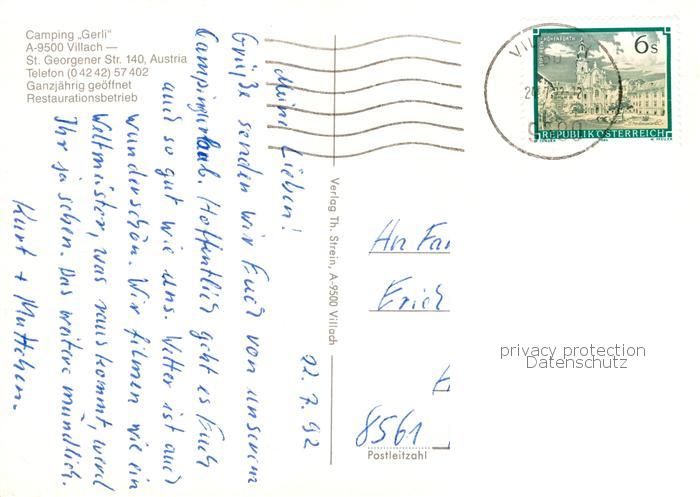 Camping „Gerli"
A-9500 Villach —
St. Georgener Str. 140, Austria
Telefon (0 42 42) 57 402
Ganzjährig geöffnet
Restaurationsbetrieb
22.7.92
Meine Lieben!
Grüße senden wir Euch von unserem
Campingurlaub. Hoffentlich geht es Euch
auch so gut wie uns. Wetter ist auch
wunderschön. Wir filmen wie ein
Weltmeister, was rauskommt, werd
Ihr ja sehen. Das weitere mündlich.
Kurt + Muttchen.
Verlag Th. Strein, A-9500 Villach
6s
REPUBLIK ÖSTERREICH
An Fam
Erich
8561
Postleitzahl
privacy protection
Datenschutz